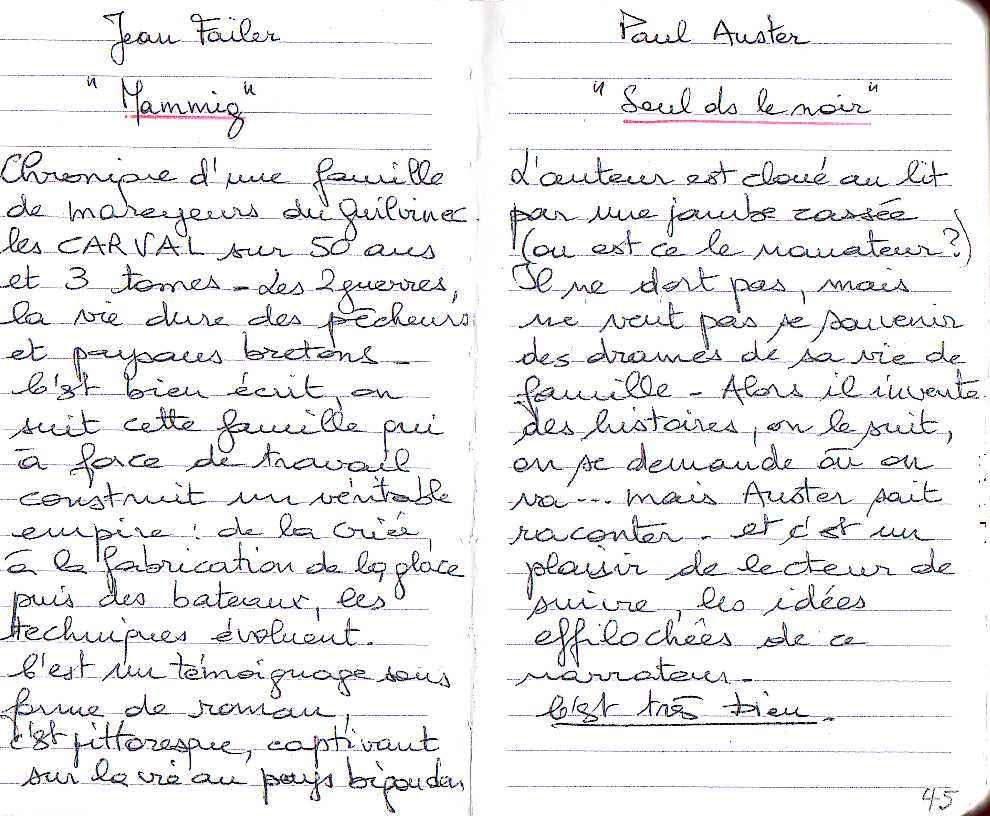 Jean Failer
"Mammig"
Chronique d'une famille
de mareyeurs du Guilvinec
les CARVAL sur 50 ans
et 3 tomes - Les 2 guerres,
la vie dure des pêcheurs
et paysans bretons -
C'est bien écrit, on
suit cette famille qui
à force de travail
construit un véritable
empire : de la criée,
à la fabrication de la glace
puis des bateaux, les
techniques évoluent.
C'est un témoignage sous
forme de roman,
c'est pittoresque, captivant
sur la vie au pays bigouden
Paul Auster
"Seul ds le noir"
L'auteur est cloué au lit
par une jambe cassée
(ou est ce le narrateur ?)
Il ne dort pas, mais
ne veut pas se souvenir
des drames de sa vie de
famille - Alors il invente
des histoires, on le suit,
on se demande où on
va --- mais Auster sait
raconter - et c'est un
plaisir de lecteur de
suivre, les idées
effilochées de ce
narrateur -
C'est très bien.
45